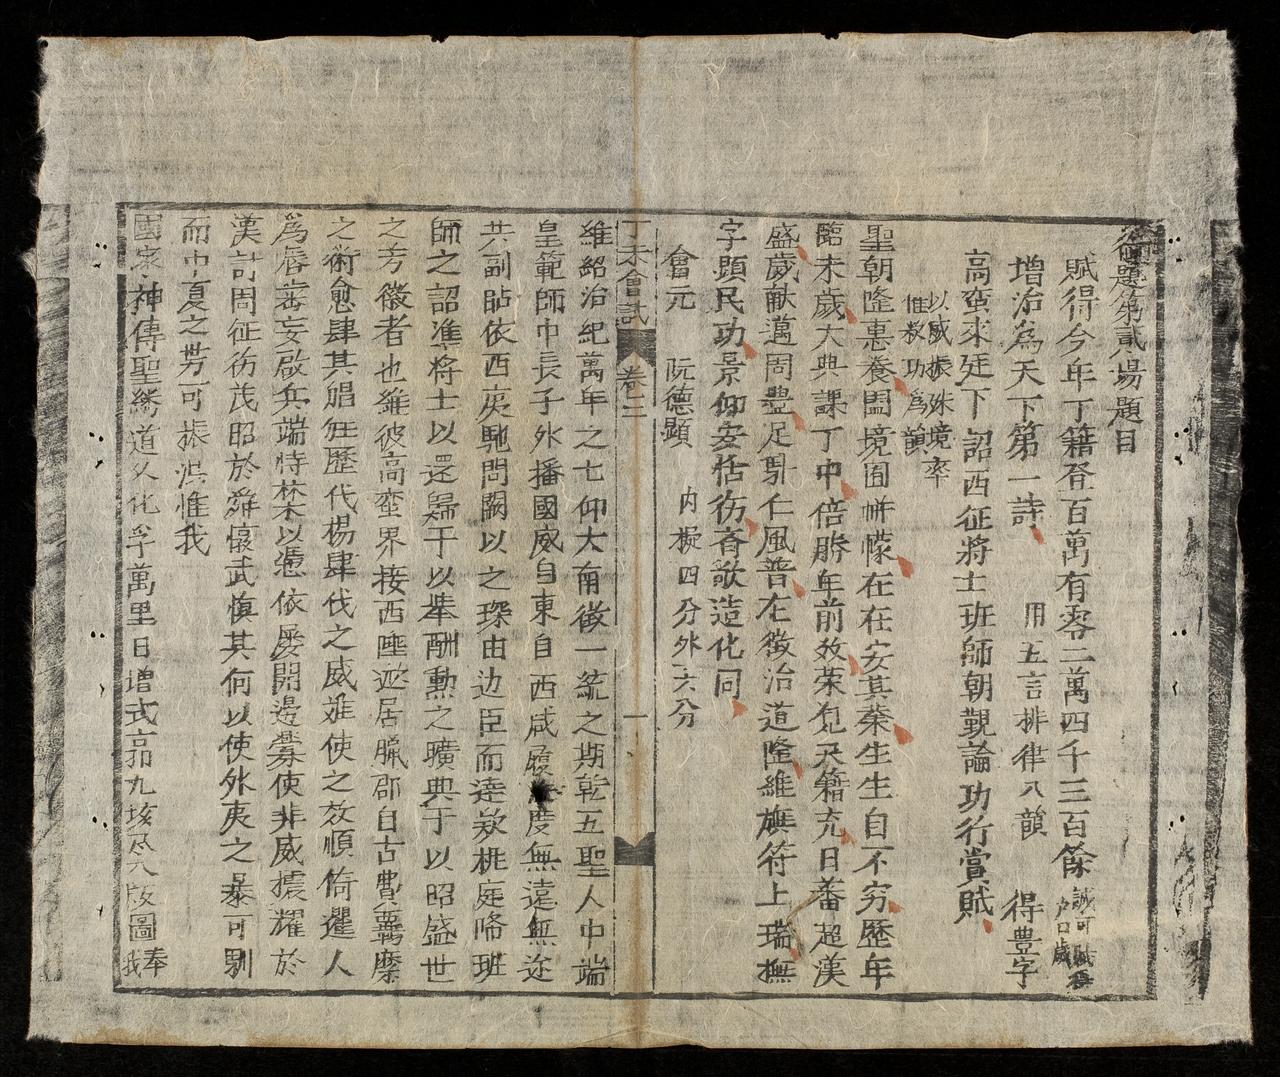 御題第貳場題目
賦得今年丁籍登百萬有零二萬四千三百餘
增治為天下第一詩 用五言排律八韻 得豊字
高蛮來廷下詔西征將士班師朝覲論功行賞賦
以威振殊境率
惟敘功為韻
聖朝隆惠養闔境囿帡幪在在安其業生生自不穷歷年
臨未歲大典課丁中倍勝年前效荣包天籍充日蕃超漢
盛歲献邁周豊足馴仁風普左徵治道隆維旗符上瑞撫
字顕民功景仰安恬彷斉歌造化同
會元 阮德顕 内擬四分外六分
丁未會試 卷二 一
維紹治紀萬年之七仰大有徵一統之期乾五聖人中端
皇範師中長子外播國威自東自西咸履度無遠無迩
共副贴依西庚馳問闕以之琛由边臣而達欵桃庭啗班
師之詔准將士以還歸于以奉酬勲之曠典于以昭盛世
之芳徽者也維彼高蛮界接西陲迩居臘郡自古費羈縻
之術愈肆其猖狂歷代楊肆伐之威难使之效順倚暹人
為唇齒妄啟兵端恃柴以憑依屡開邊釁使非威振耀於
漢討周征彷茂昭於舜懷武慎其何以使外夷之暴可馴
而中夏之势可振洪惟我
國家神傳聖緒道久化孚萬里日增式廓九垓尽入版圖奉